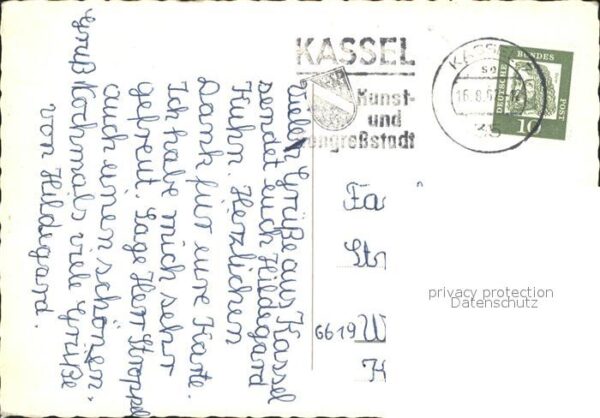 Viele Grüße aus Kassel
sendet euch Hildegard
Kuhn. Herzlichen
Dank für eure Karte.
Ich habe mich sehr
gefreut. Sage Herr Stroppl
auch einen schönen.
Gruß Nochmals viele Grüße
von Hildegard.
KASSEL
Kunst-
und
ongreßstadt
KASSEL
16.8.6
DEUTSCHE BUNDESPOST
10
Fa
Str
6619 W
K
privacy protection
Datenschutz